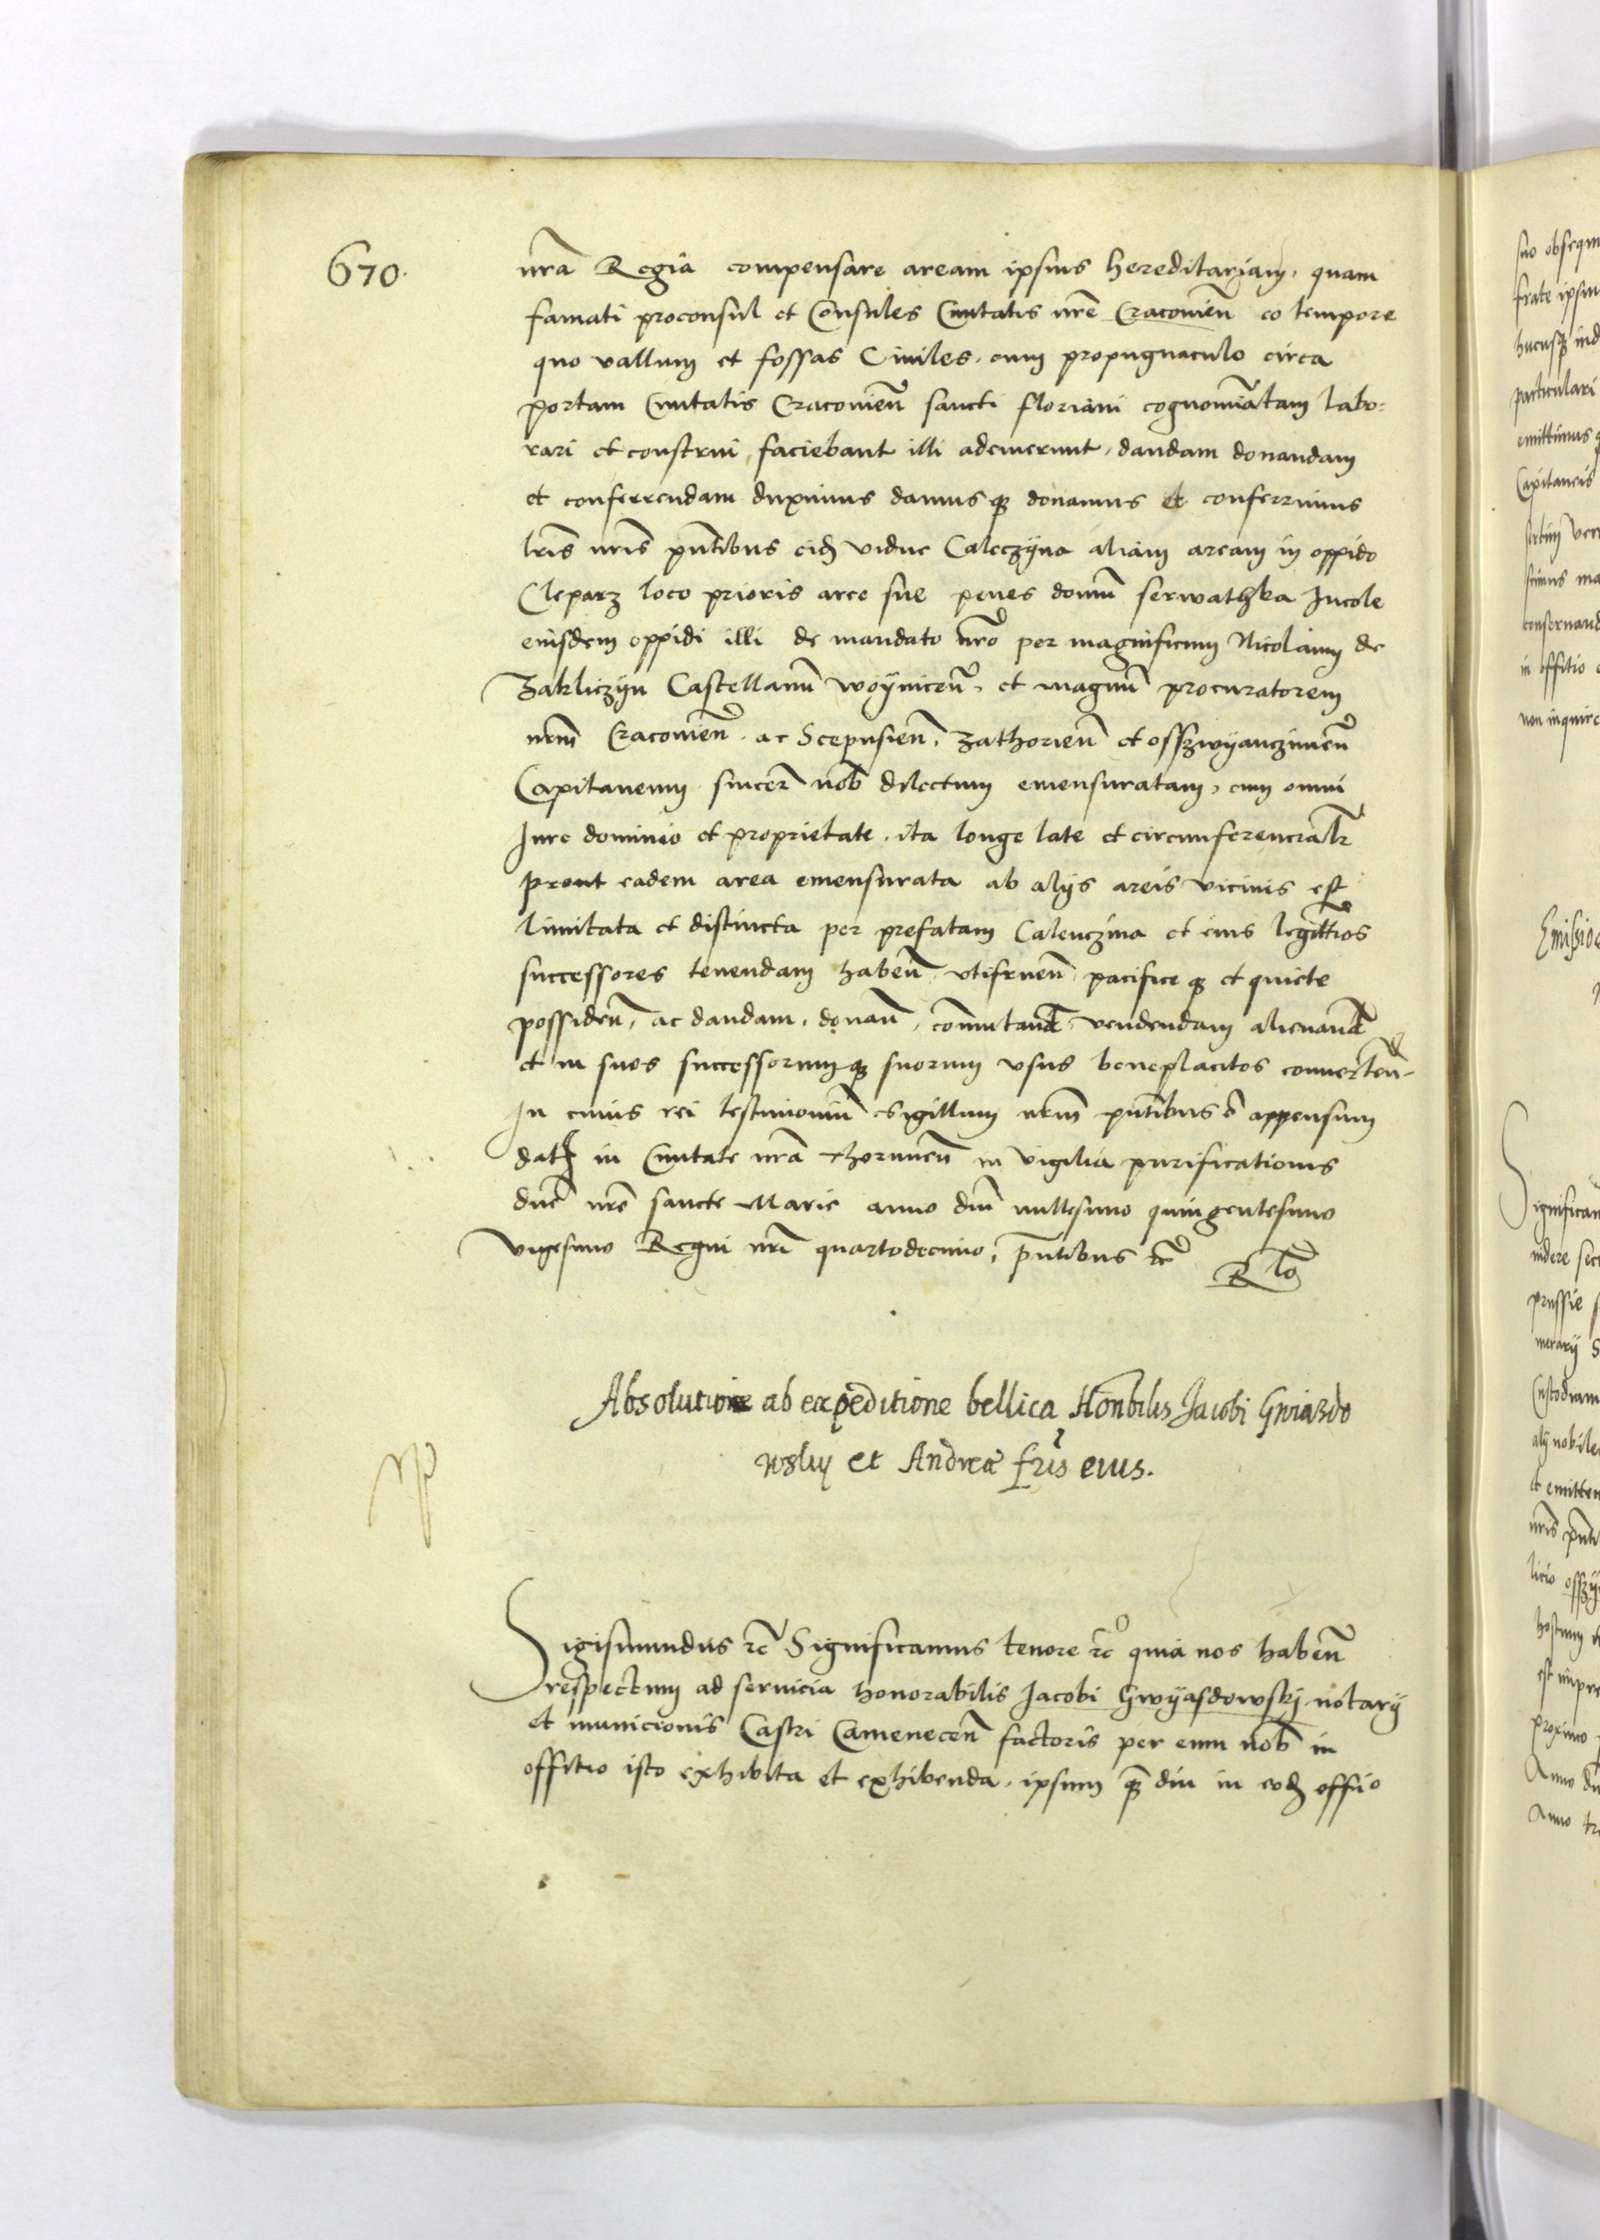 670.
nrã Regia compensare aream ipsius hereditariam, quam
famati proconsul et Consules Ciuitatis nrẽ Cracouieñ eo tempore
quo vallum et fossas Ciuiles, cum propugnaculo circa
portam Ciuitatis Cracouieñ sancti floriani cognomiãtam labo-
rari et construi faciebant illi ademerunt, dandam donandam
et conferrendam duximus damusq donamus et conferrimus
lris nris pñtibus eidẽ vidue Caleczijna aliam aream in oppido
Cleparz loco prioris aree sue penes domũ serwathka Incole
eiusdem oppidi illi de mandato nrõ per magnificum Nicolaum de
Zakliczijn Castellanũ woijniceñ, et magnũ procuratorem
nrm̃ Cracouieñ. ac Scepusieñ, Zathorieñ et osszwijanczimeñ
Capitaneum sincer nob dilectum emensuratam, cum omni
Iure dominio et proprietate, ita longe late et circumferencialr
prout eadem area emensurata ab alijs areis vicinis est
limitata et distincta per prefatam Calenczina et eius legittĩos
successores tenendam habeñ vtifrueñ pacificeq et quiete
possideñ, ac dandam, donañ, com̃utand, vendendam alienand
et in suos successorumq suorum vsus beneplacitos conuerteñ.
In cuius rei testimoniũ Sigillum nrm̃ pñtibus ẽ appensum
dat in Ciuitate nrã thoruneñ in vigilia purificationis
dñe nrẽ sancte Marie anno dñi millesimo quingentesimo
vigesimo Regni nri quartodecimo, pñtibus etc̃
R lõ
Absolutione ab expeditione bellica Honbilis Jacobi Gwiazdo
wskij et Andreæ fris eius.
Sigismundus etc̃ Significamus tenore etc̃ quia nos habeñ
respectum ad seruicia honorabilis Jacobi Gwijasdowskj notarij
et municionis Castri Cameneceñ factoris per eum nob in
offitio isto exhibita et exhibenda, ipsum q̃ diu in eodẽ officio
suo obsequ
frate ipsiu
hucusq ind
particulari
emittimus q
Capitaneis
conseruand
in offitio
non inquire
Emissio
Significam
prussie
Custodiam
alij nobile
et emitten
nris pñti
proximo
Anno dñ
Anno